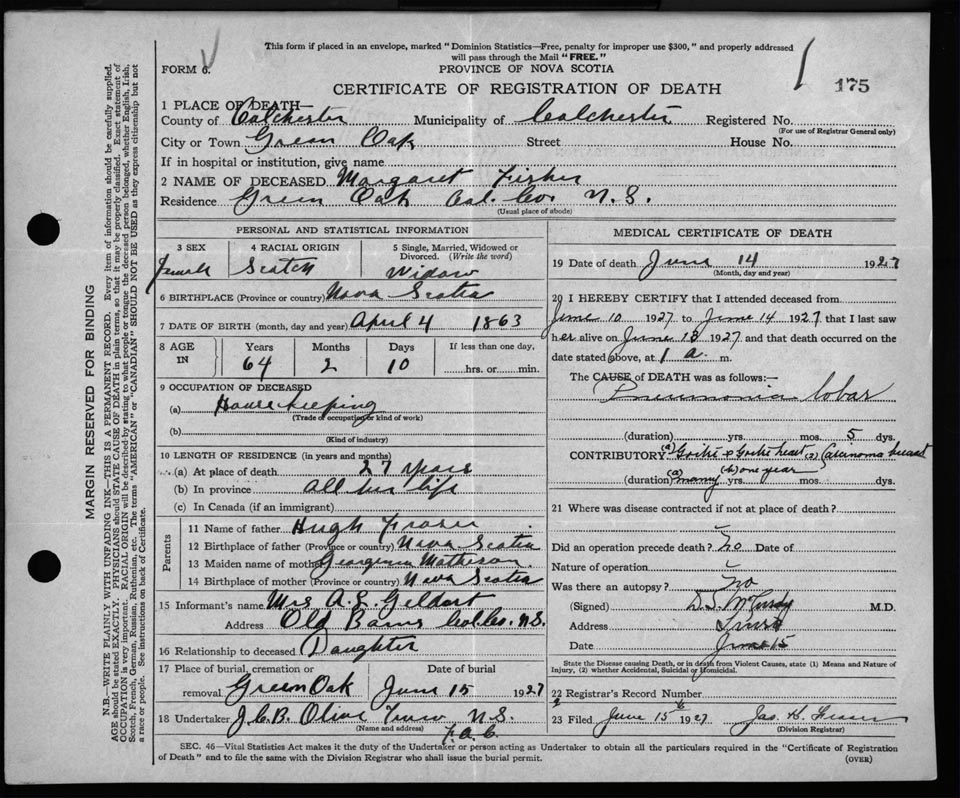 This form if placed in an envelope, marked "Dominion Statistics—Free, penalty for improper use $300," and properly addressed
will pass through the Mail "FREE."
FORM 6.
PROVINCE OF NOVA SCOTIA
CERTIFICATE OF REGISTRATION OF DEATH
175
1 PLACE OF DEATH—
County of Colchester Municipality of Colchester Registered No.
(For use of Registrar General only)
City or Town Green Oak Street House No.
If in hospital or institution, give name
2 NAME OF DECEASED Margaret Fisher
Residence Green Oak Col. Co. N.S.
(Usual place of abode)
PERSONAL AND STATISTICAL INFORMATION
3 SEX 4 RACIAL ORIGIN 5 Single, Married, Widowed or
Divorced. (Write the word)
Female Scotch Widow
6 BIRTHPLACE (Province or country) Nova Scotia
7 DATE OF BIRTH (month, day and year) April 4 1863
8 AGE IN Years Months Days If less than one day,
64 2 10 hrs. or min.
9 OCCUPATION OF DECEASED
(a) Housekeeping
(Trade or occupation or kind of work)
(b)
(Kind of industry)
10 LENGTH OF RESIDENCE (in years and months)
(a) At place of death 27 years
(b) In province all her life
(c) In Canada (if an immigrant)
Parents
11 Name of father Hugh Fraser
12 Birthplace of father (Province or country) Nova Scotia
13 Maiden name of mother Georgina Matheson
14 Birthplace of mother (Province or country) Nova Scotia
15 Informant's name Mrs A. E. Geldart
Address Old Barns Col Co. N.S.
16 Relationship to deceased Daughter
17 Place of burial, cremation or Date of burial
removal Green Oak June 15 1927
18 Undertaker J.C.B. Olive Truro N.S.
(Name and address)
MEDICAL CERTIFICATE OF DEATH
19 Date of death June 14 1927
(Month, day and year)
20 I HEREBY CERTIFY that I attended deceased from
June 10 1927 to June 14 1927 that I last saw
her alive on June 13 1927 and that death occurred on the
date stated above, at 1 a. m.
The CAUSE of DEATH was as follows:—
Pneumonia lobar
(duration) yrs. mos. 5 dys.
CONTRIBUTORY (a) Goitre & Goitre heart (2) Carcinoma breast
(duration) (a) many (b) one year mos. dys.
21 Where was disease contracted if not at place of death?
Did an operation precede death? no Date of
Nature of operation
Was there an autopsy? no
(Signed) D.S. McCurdy M.D.
Address Truro
Date June 15
State the Disease causing Death, or in death from Violent Causes, state (1) Means and Nature of
Injury, (2) whether Accidental, Suicidal or Homicidal.
22 Registrar's Record Number
23 Filed June 15 1927
(Division Registrar)
SEC. 46—Vital Statistics Act makes it the duty of the Undertaker or person acting as Undertaker to obtain all the particulars required in the "Certificate of Registration
of Death" and to file the same with the Division Registrar who shall issue the burial permit.
(OVER)
MARGIN RESERVED FOR BINDING
N.B.—WRITE PLAINLY WITH UNFADING INK—THIS IS A PERMANENT RECORD. Every item of information should be carefully supplied.
AGE should be stated EXACTLY. PHYSICIANS should STATE CAUSE OF DEATH in plain terms, so that it may be properly classified. Exact statement of
OCCUPATION is very important. RACIAL ORIGIN will be described by stating to what people or tongue the deceased person belonged, whether English, Irish,
Scotch, French, German, Russian, Ruthenian, etc. The terms "AMERICAN" or "CANADIAN" SHOULD NOT BE USED as they express citizenship but not
a race or people. See instructions on back of Certificate.